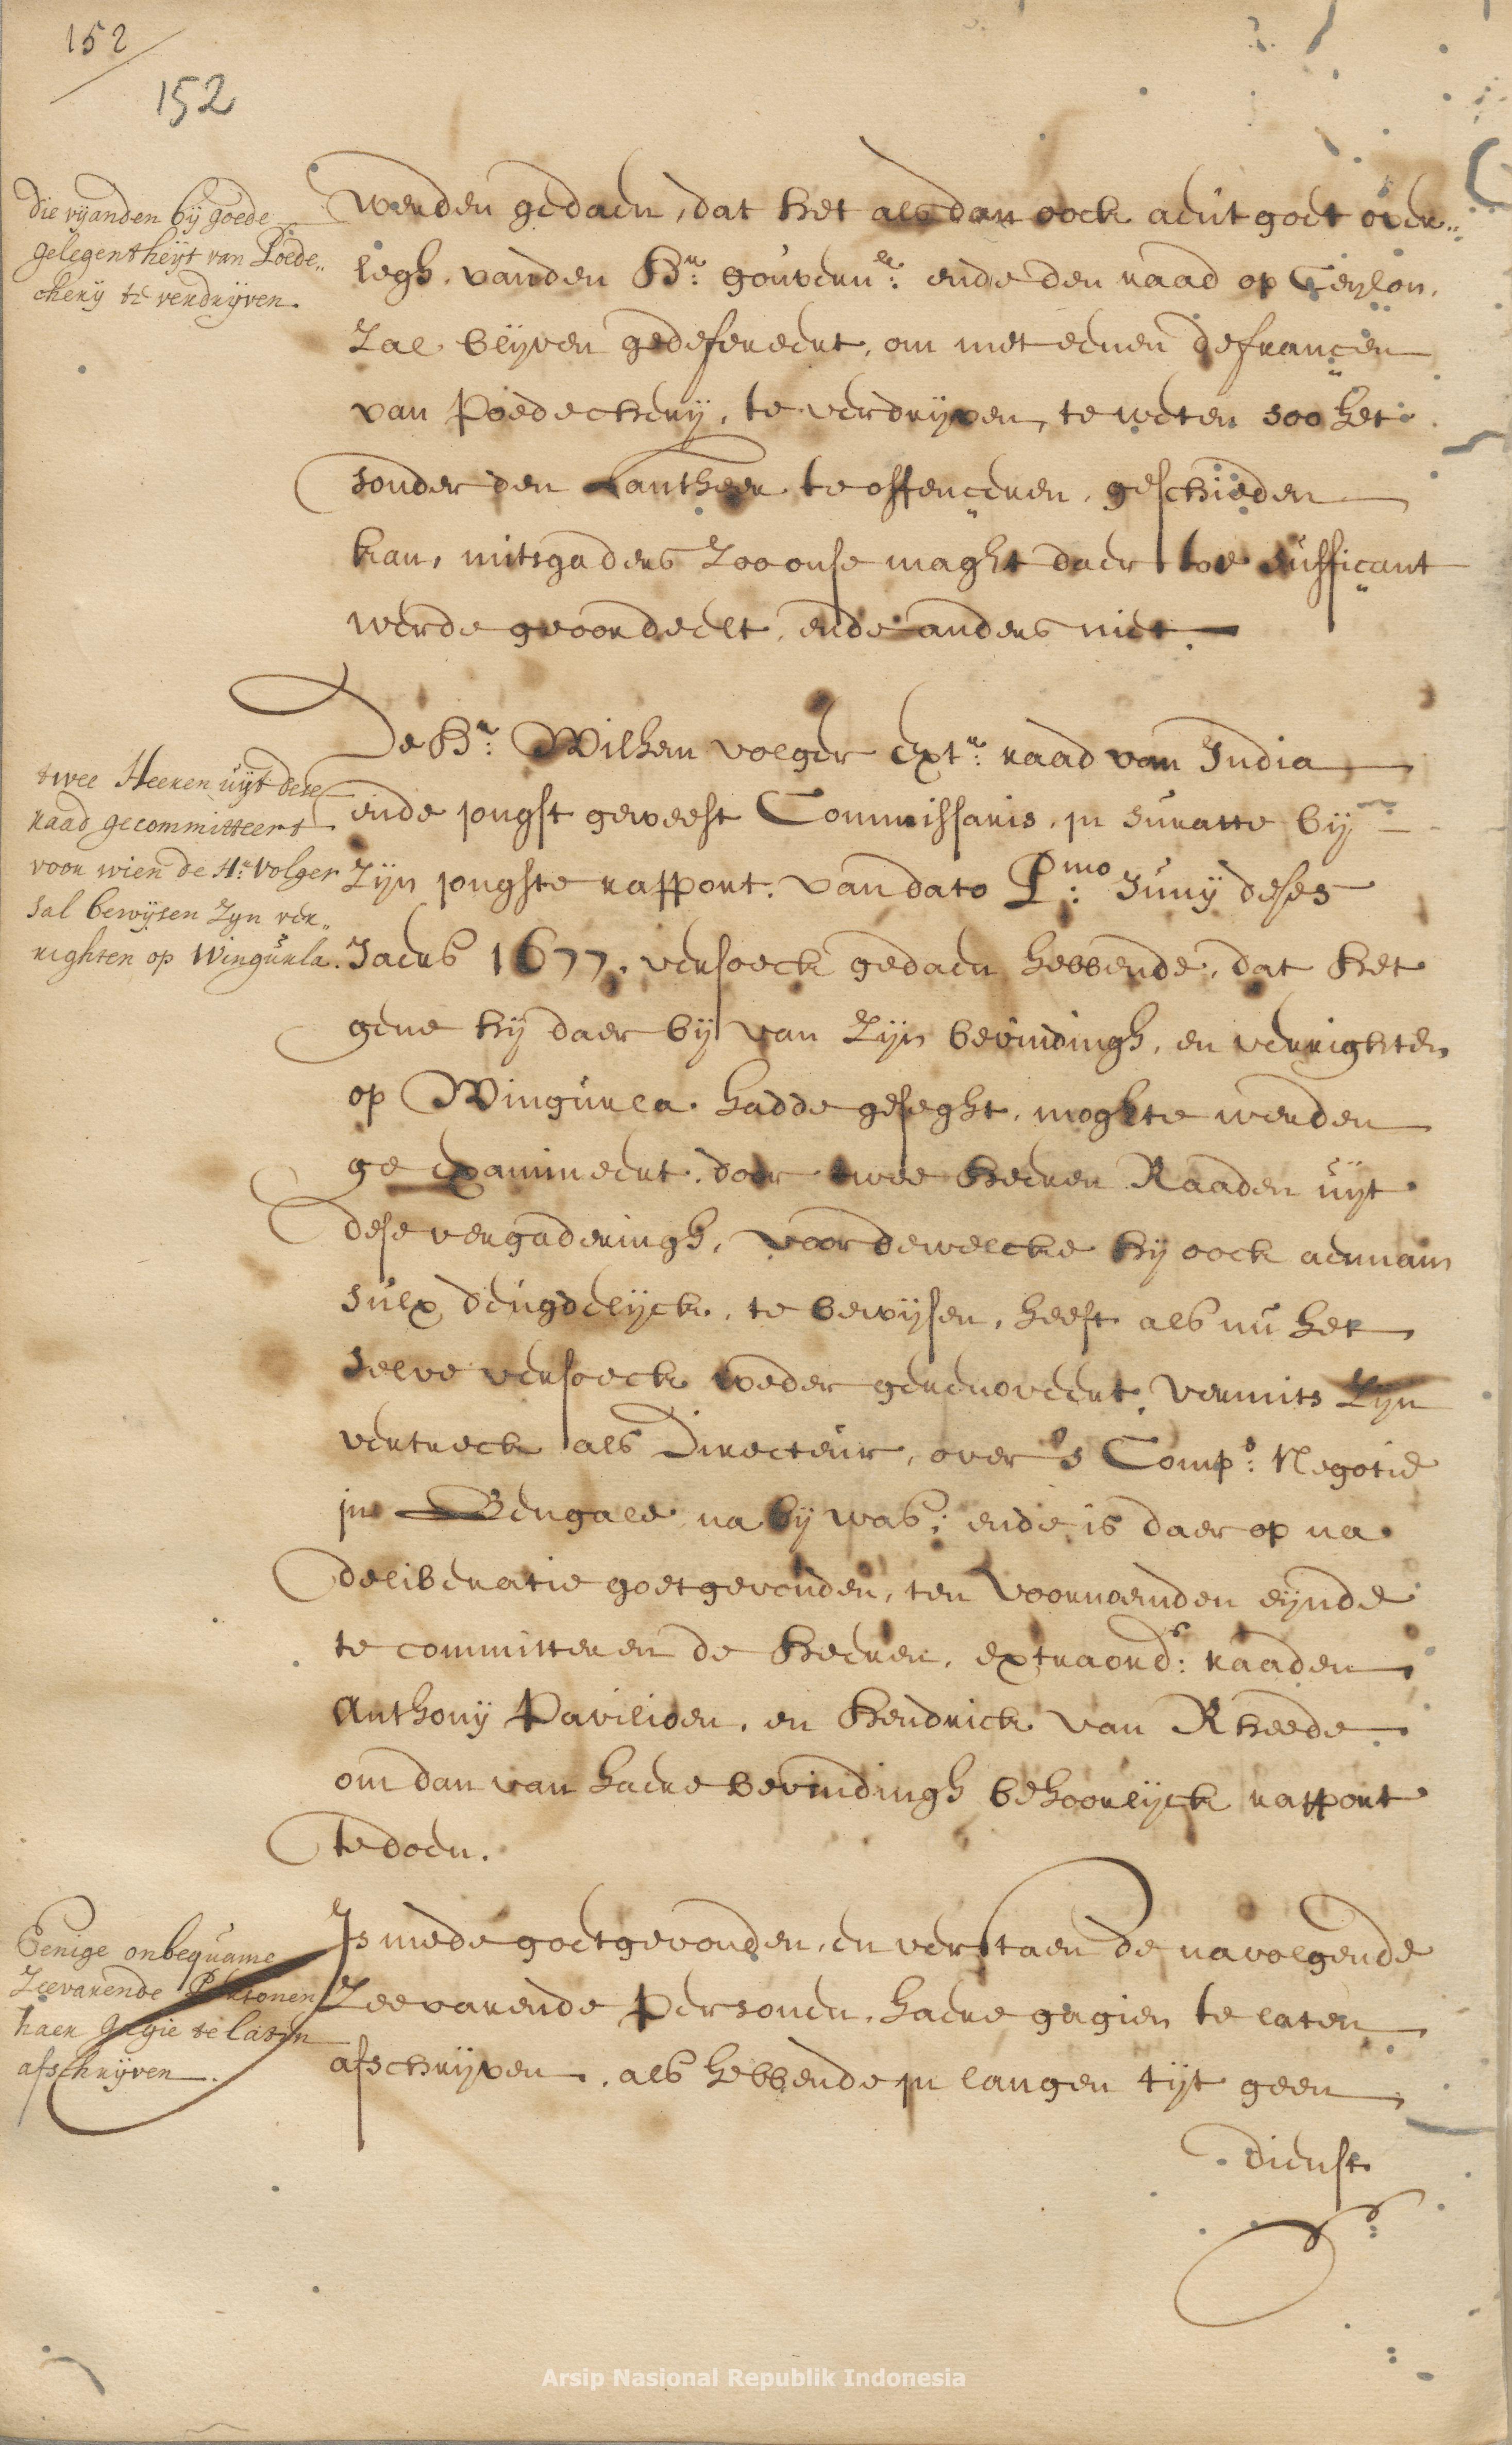 152
152
die vijanden bij goede
gelegentheijt van Poede„
cherij te verdrijven.
werden gedaen, dat het als dan oock aen't goet over„
legh, vanden Hr: gouvernr: ende den raad op Ceylon,
zal blijven gedefereert, om met eenen de francen
van Poedecherij, te verdrijven, te weten soo het
sonder den Lantheer te offenceren, geschieden
kan, mitsgaders zoo onse maght daer toe sufficant
werde geoordeelt, ende anders niet.
twee Heeren uijt dese
raad gecommitteert
voor wien de Hr: Volger
sal bewijsen zyn ver„
righten op Wingurla.
De Hr: Wilhem volger Extr: raad van India
ende jongst geweest Commissaris, in suratte bij
zijn jonghste rapport, van dato Pmo: Junij deses
Jaers 1677, versoeck gedaen hebbende, dat het
gene hij daer bij van zijn bevindingh, en verrighten
op Wingurla hadde geseght, moghte werden
ge examineert, door twee heeren Raaden uijt
dese vergaderingh, voor dewelcke hij oock aennam
sulx deugdelijck, te bewijsen, heeft als nu het
selve versoeck weder gerenoveert, vermits zijn
vertreck als Directeur, over 's Comps: Negotie
in Bengale na bij was; ende is daer op na
deliberatie goetgevonden, ten voornoemden eijnde
te committeren de heeren, extraords: raaden
Anthonij Pavilioen, en Hendrick van Rheede
om dan van haere bevindingh behoorlijck rapport
te doen.
Eenige onbequame
Zeevarende Personen
haer gagie te laten
afschrijven.
Is mede goetgevonden, en verstaen de navolgende
Zeevarende Personen, haere gagien te laten
afschrijven, als hebbende in langen tijt geen
dienst
Arsip Nasional Republik Indonesia